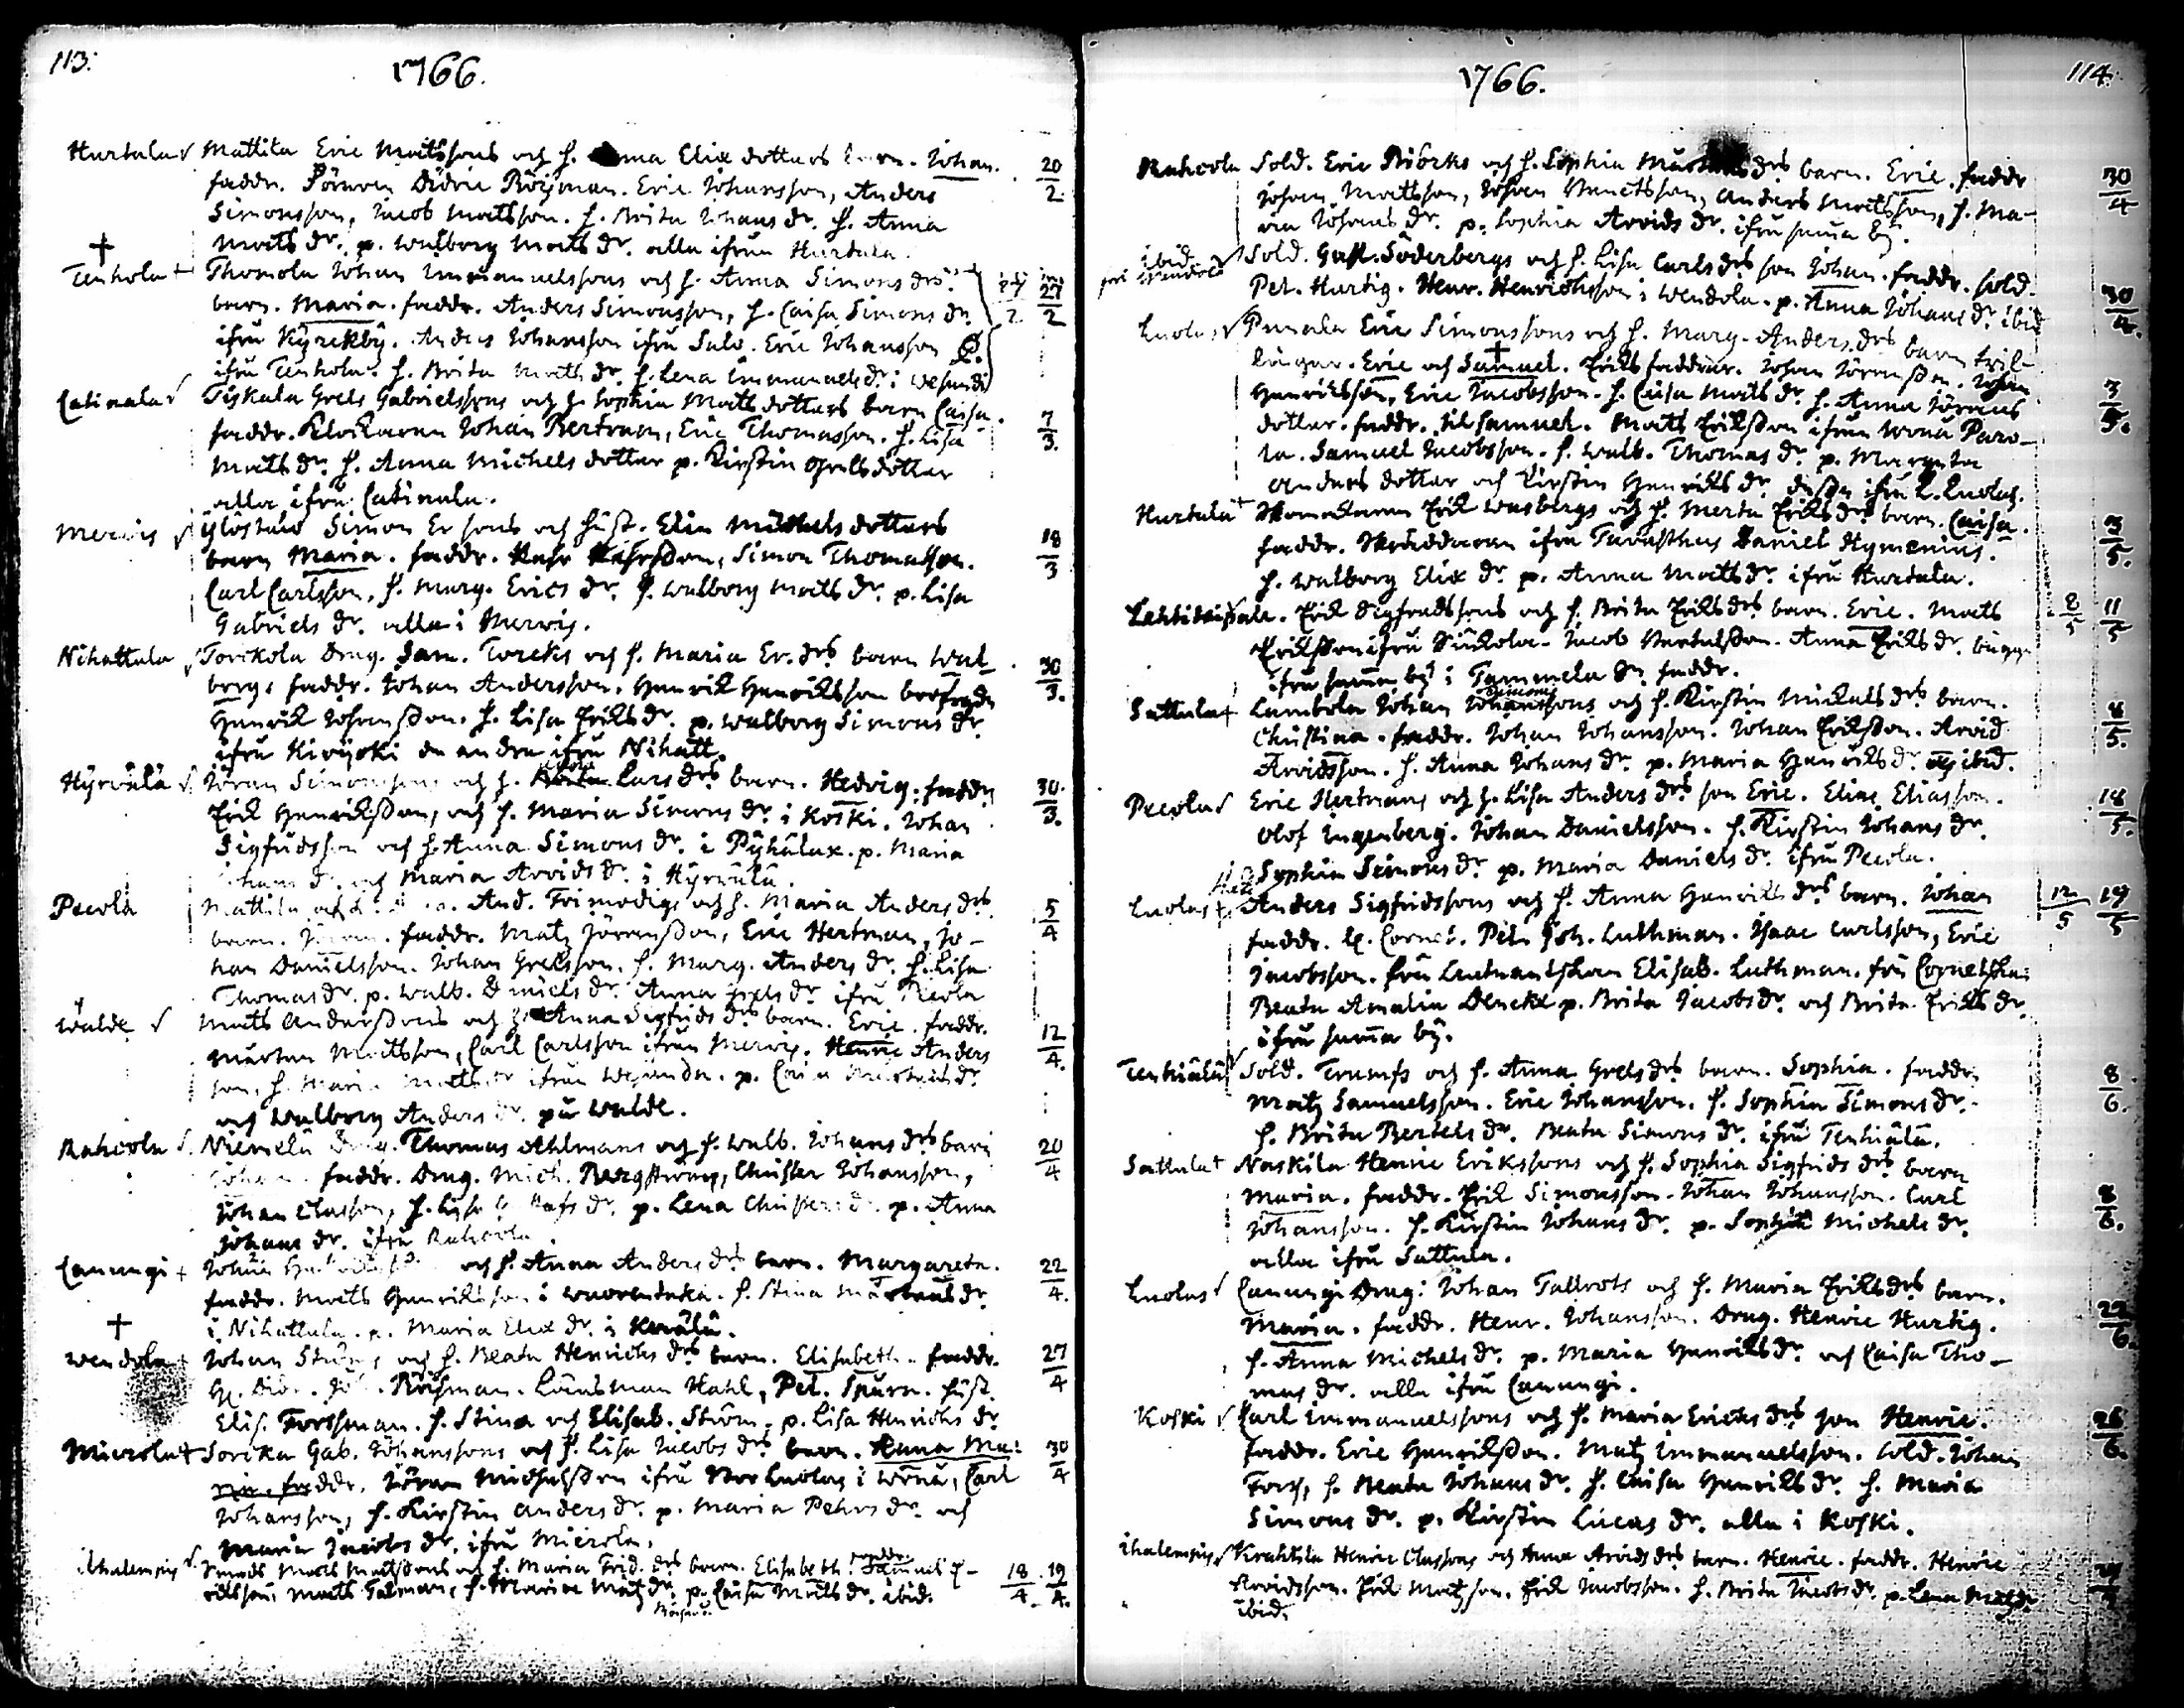 113:
1766.
Hurtala √ Mattila Eric Matssons och h. Anna Elix dotters barn. Johan. 20/2
faddr. Jörcken Didric Röijman. Eric Johansson, Anders
Simonsson, Jacob Matsson. h. Brita Johans dr. h. Anna
Mats dr. p. Walborg Mats dr. alla ifrån Hurtala.
†
Tenhola + Thomola Johan Immanuelssons och h. Anna Simons drs 27/2
barn. Maria. faddr. Anders Simonsson, h. Caisa Simons dr
ifrå Kyrckby. Anders Johansson ifrå Salo. Eric Johansson
ifrå Tenhola. h. Brita Mats dr. h. Lena Immanuels dr. i Wesunda
Catinala √ Tiskala Grels Gabrielssons och h. Sophia Mats dotters barn Caisa. 7/3.
faddr. Klockaren Johan Bertram, Eric Thomasson. h. Lisa
Mats dr. h. Anna Michels dotter p. Kirstin Grels dotter
alla ifrå Catinala.
Mervis √ Ylöstalo Simon Ersons och hust. Elin Michels dotters 18/3
barn Maria. faddr. Simon Thomasson.
Carl Carlsson, h. Marg. Erics dr. h. Walborg Mats dr. p. Lisa
Gabriels dr. alla i Mervis.
Nihattula √ Torckola Drag. Sam. Torcks och h. Maria Er. drs barn Wal- 30/3.
borg. faddr. Johan Andersson. Henrik Henriksson
Henrik Johansson. h. Lisa Eriks dr. p. Walborg Simons dr
ifrå Kivijoki de andra ifrå Nihatt.
Hyrvälä √ Jöran Simonssons och h. Lars drs barn. Hedvig. faddr 30/3.
Erik Henriksson, och h. Maria Simons dr. i Koski. Johan
Sigfridsson och h. Anna Simons dr. i Pyhälax. p. Maria
Johans dr. och Maria Arvids dr. i Hyrvälä.
Pecola Mattila And. Frimodigs och h. Maria Anders drs 5/4
barn. faddr. Matz Jöransson, Eric Hertman, Jo-
han Danielsson. Johan Grelsson. h. Marg. Anders dr. h. Lisa
Thomas dr. p. Walb. Daniels dr. Anna Grels dr. ifrå Pecola
Walde √ Mats Anderssons och h. Anna Sigfrids drs barn. Eric. faddr. 12/4.
Mårten Matsson, Carl Carlsson ifrån Mervis. Henric Anders
son, h. Maria Mats dr ifrån Wesunda. p. Caisa Mårtens dr.
och Walborg Anders dr. på Walde.
Rahcola √. Niemelä Drag. Thomas Ahlmans och h. Walb. Johans drs barn 20/4
Johan. faddr. Drag. Mich. Bergström, Christer Johansson,
Johan Classon, h. p. Lena Christers dr. p. Anna
Johans dr. ifrå Rahcola.
Canungi + Johan och h. Anna Anders drs barn. Margareta. 22/4.
faddr. Mats Henriksson i Wuorentaka. h. Stina Mårtens dr.
i Nihattula. p. Maria Elix dr. i Kerälä.
†
Wendola + Johan Ströms och h. Beata Henrichs drs barn. Elisabeth. faddr. 27/4
Röijman. Länsman Hahl, Pet. Spurn. hust.
Elis. Forssman. h. Stina och Elisab. Ström. p. Lisa Henrichs dr.
Mierola + Sorcka Gab. Johanssons och h. Lisa Jacobs drs barn. Anna Ma- 30/4
ria. faddr. Jöran Michelsson ifrå Stor Luolas i Wånå, Carl
Johansson, h. Kirstin Anders dr. p. Maria Pehrs dr. och
Maria Jacobs dr. ifrå Mierola.
Ihalempis √ Mats Matssons och h. Maria Frid. drs barn. Elisabeth. faddr. Samuel E- 18/4. 19/4.
rikson, Mats Talman, h. Maria Matz dr. p. Caisa Mats dr. ibid.
114.
1766.
Rahcola Sold. Eric Biörks och h. Sophia Mårtens drs barn. Eric. faddr 30/4
Johan Matsson, Johan Matsson, Anders Matsson, h. Ma-
ria Johans dr. p. Sophia Arvids dr. ifrå samma by.
ibid. √ Sold. Gust. Söderbergs och h. Lisa Carls drs son Johan. faddr. Sold. 30/4.
Pet. Hurtig. Henr. Henrichsson i Wendola. p. Anna Johans dr. ibid
Luolas √ Punala Eric Simonssons och h. Marg. Anders drs barn tvil- 3/5.
lingar. Eric och Samuel. † Eriks faddrar. Johan Jöransson. Johan
Henriksson, Eric Jacobsson. h. Caisa Mats dr. h. Anna Jörans
dotter. faddr. til Samuel. Mats Eriksson ifrån Wånå Paro-
la. Samuel Jacobsson. h. Walb. Thomas dr. p. Margeta
Anders dotter och Kirstin Henriks dr. dessa ifrå L. Luolas.
Hurtala + Skomakaren Erik Wasbergs och h. Merta Eriks drs barn. Caisa. 3/5.
faddr. Skräddaren ifrå Tavasthus Daniel Hymenius.
h. Walborg Elix dr. p. Anna Mats dr. ifrå Hurtala.
Erik Sigfredssons och h. Brita Eriks drs barn. Eric. Mats 8/5 11/5
Eriksson ifrå Sückola. Jacob Anna Eriks dr.
ifrå samma by i Tammela Sn faddr.
Sattula + Lambola Johan Simonssons och h. Kirstin Mickels drs barn. 8/5.
Christina. faddr. Johan Johansson. Johan Eriksson. Arvid
Arvidsson. h. Anna Johans dr. p. Maria Henriks dr. ibid.
Pecola √ Eric Hertmans och h. Lisa Anders drs son Eric. Elias Eliasson. 18/5.
Olof Ingenberg. Johan Danielsson. h. Kirstin Johans dr.
Sophia Simons dr. p. Maria Daniels dr. ifrå Pecola.
Luolas + Anders Sigfridssons och h. Anna Henriks drs barn. Johan 12/5 19/5
faddr. H. Cornet. Pet. Joh. Luthman. Isaac Carlsson, Eric
Jacobsson. fru Leutnantskan Elisab. Luthman. fru Cornetska
Beata Amalia Denckx p. Brita Jacobs dr. och Brita Eriks dr.
ifrå samma by.
Tenhiälä √ Sold. Trumfs och h. Anna Grels drs barn. Sophia. faddr. 8/6.
Matz Samuelsson. Eric Johansson. h. Sophia Simons dr.
h. Brita Bertels dr. Beata Simons dr. ifrå Tenhiälä.
Sattula + Naskila Henric Erikssons och h. Sophia Sigfrids drs barn 8/6.
Maria. faddr. Erik Simonsson. Johan Johansson. Carl
Johansson. h. Kirstin Johans dr. p. Sophia Michels dr.
alla ifrå Sattula.
Luolas √ Canungi Drag: Johan Tallrots och h. Maria Eriks drs barn. 22/6
Maria. faddr. Henr. Johansson. Drag. Henric Hurtig.
h. Anna Michels dr. p. Maria Henriks dr. och Caisa Tho-
mas dr. alla ifrå Canungi.
Koski √ Carl Immanuelssons och h. Maria Ericks drs son Henric. 26/6.
faddr. Eric Henriksson. Matz Immanuelsson. Sold. Johan
Fors, h. Beata Johans dr. h. Caisa Henriks dr. h. Maria
Simons dr. p. Kirstin Lucas dr. alla i Koski.
Ihalempis √ Krahtila Henric Classons och Anna Arvids drs barn. Henric. faddr. Henric
Arvidsson. Erik Matzson. Erik Jacobsson. h. Brita Jacobs dr. p. Lena Matz dr
ibid.